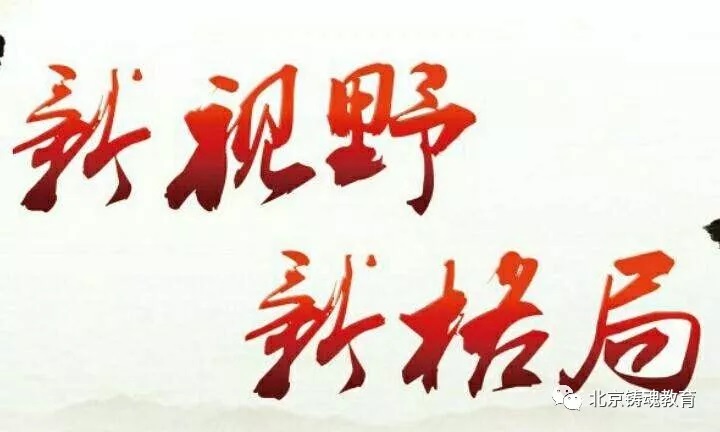 新视野
新格局
北京铸魂教育